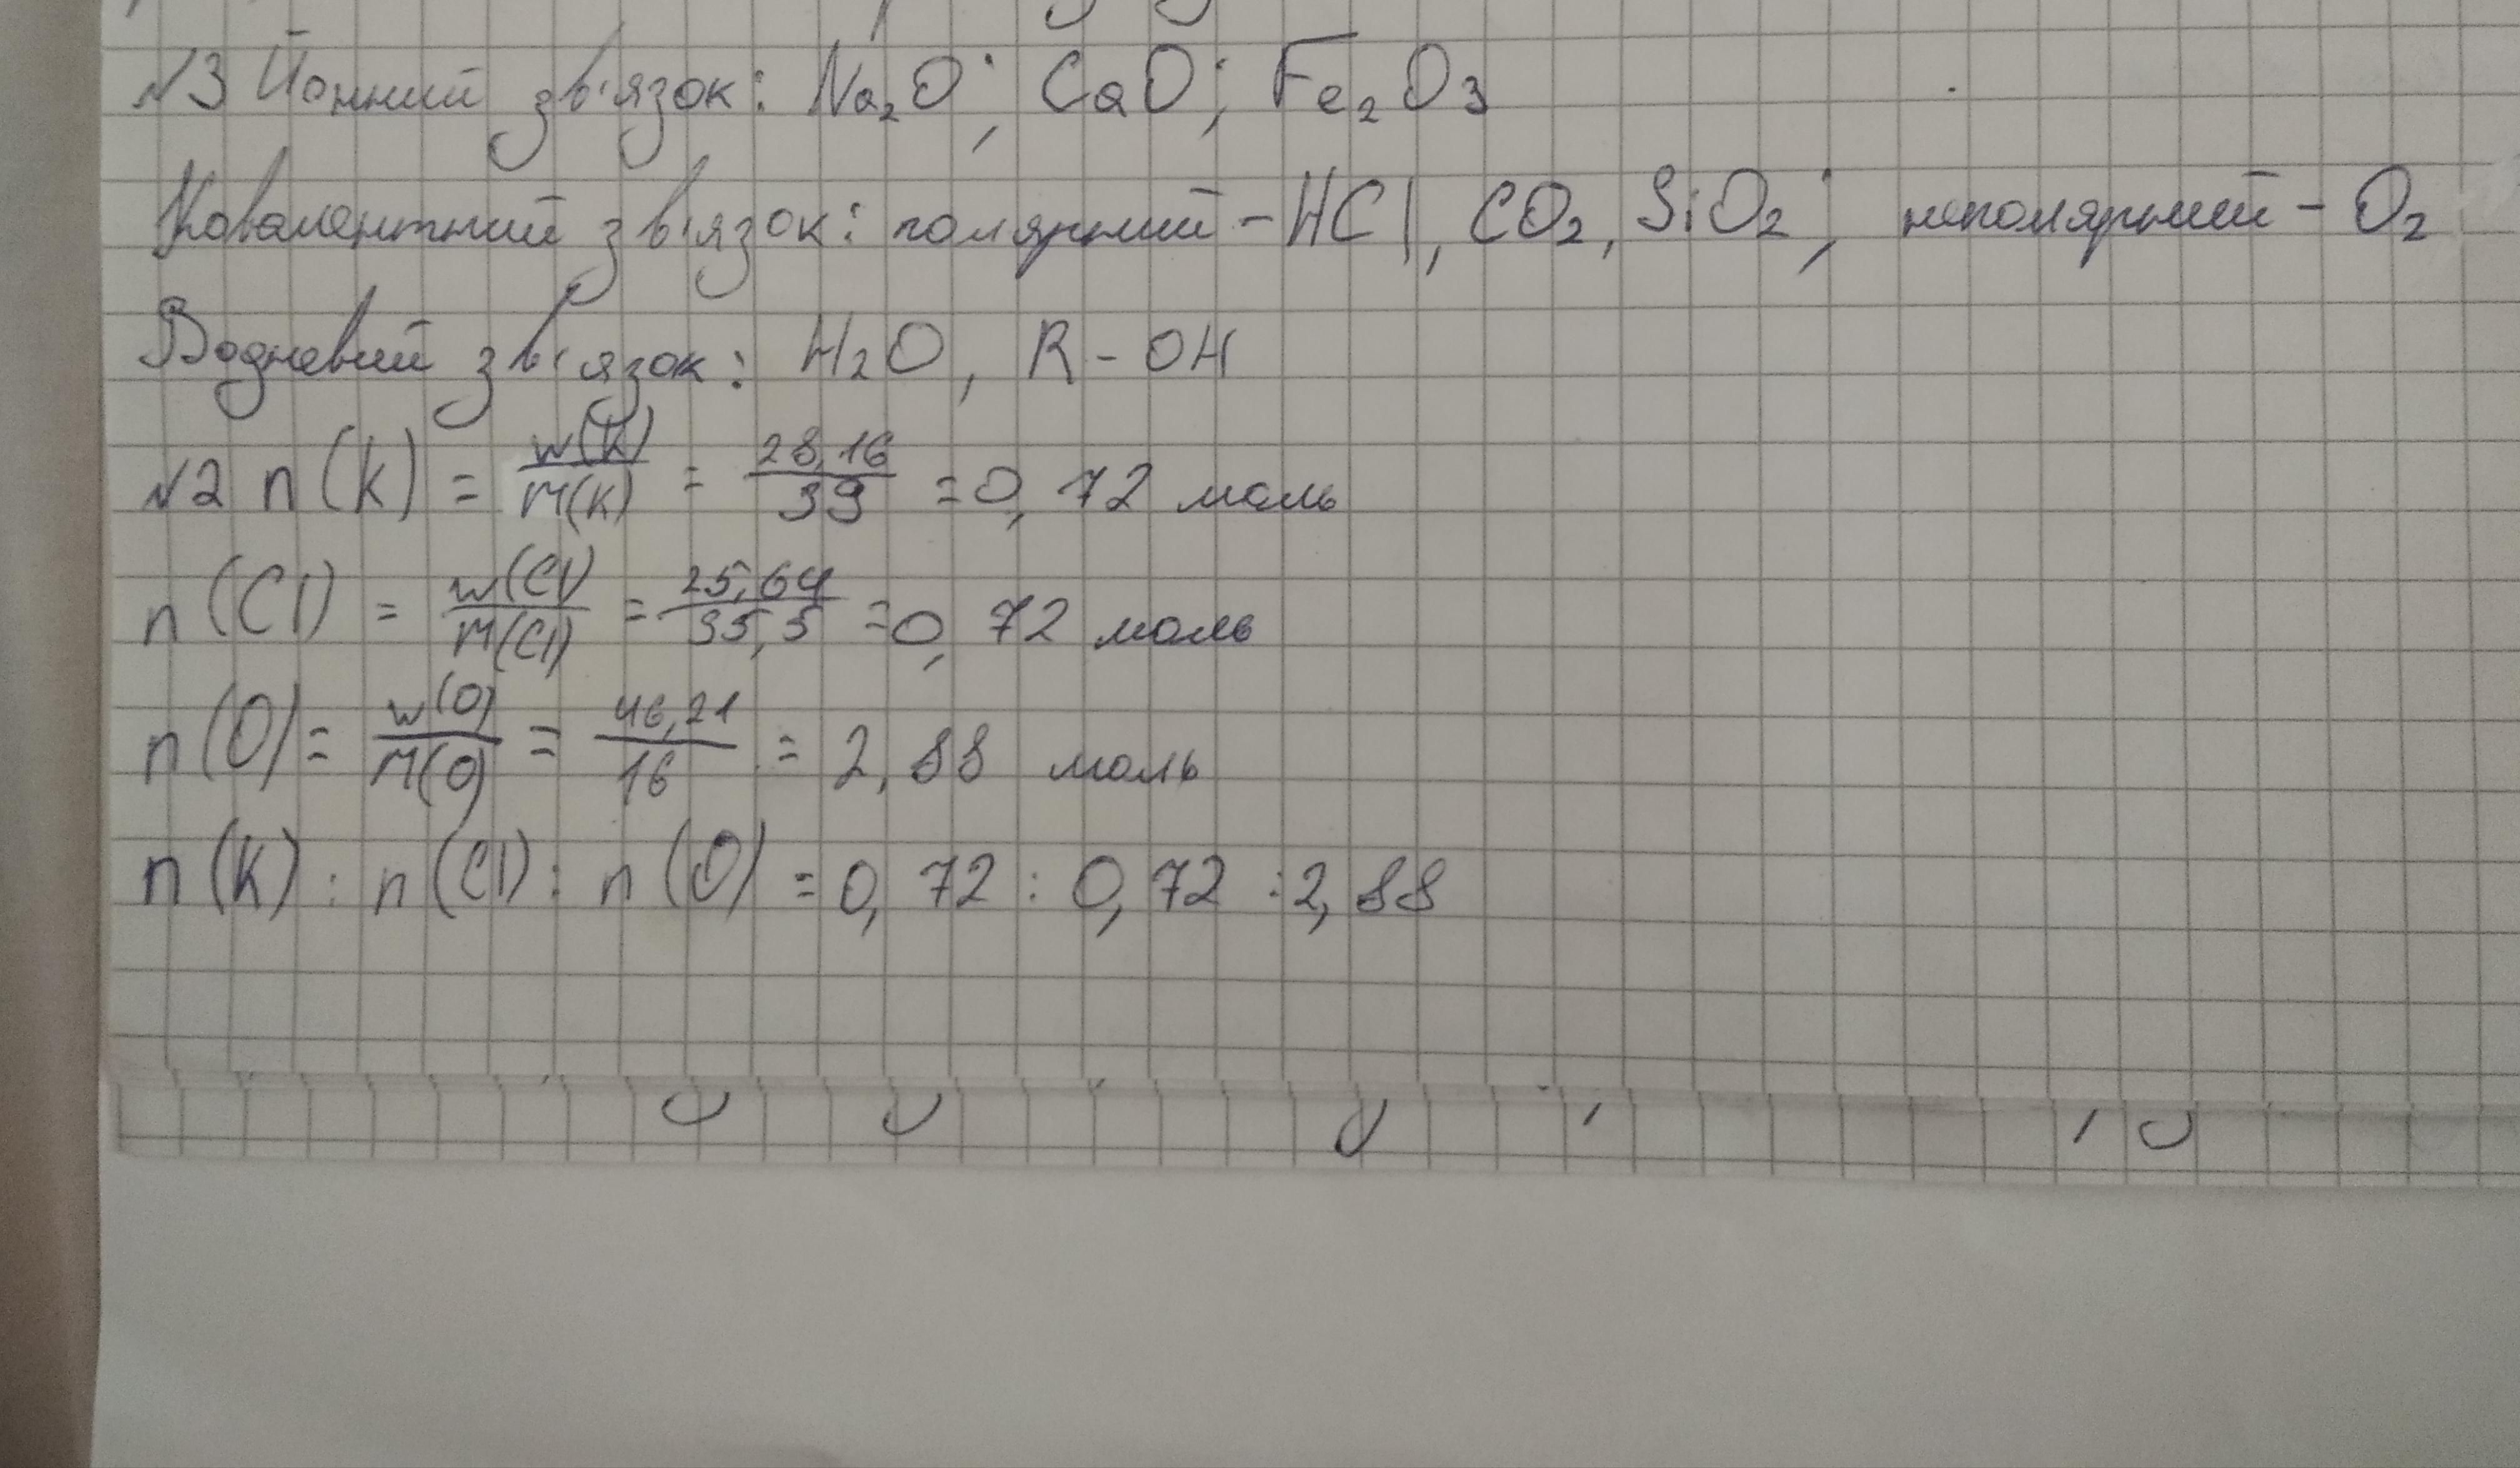 №3 Йонний зв'язок: Na₂O; CaO; Fe₂O₃
Ковалентний зв'язок: полярний - HCl, CO₂, SiO₂; неполярний - O₂
Водневий зв'язок: H₂O, R - OH
№2 n(K) = w(K)/M(K) = 28,16/39 = 0,72 моль
n(Cl) = w(Cl)/M(Cl) = 25,64/35,5 = 0,72 моль
n(O) = w(O)/M(O) = 46,21/16 = 2,88 моль
n(K) : n(Cl) : n(O) = 0,72 : 0,72 : 2,88